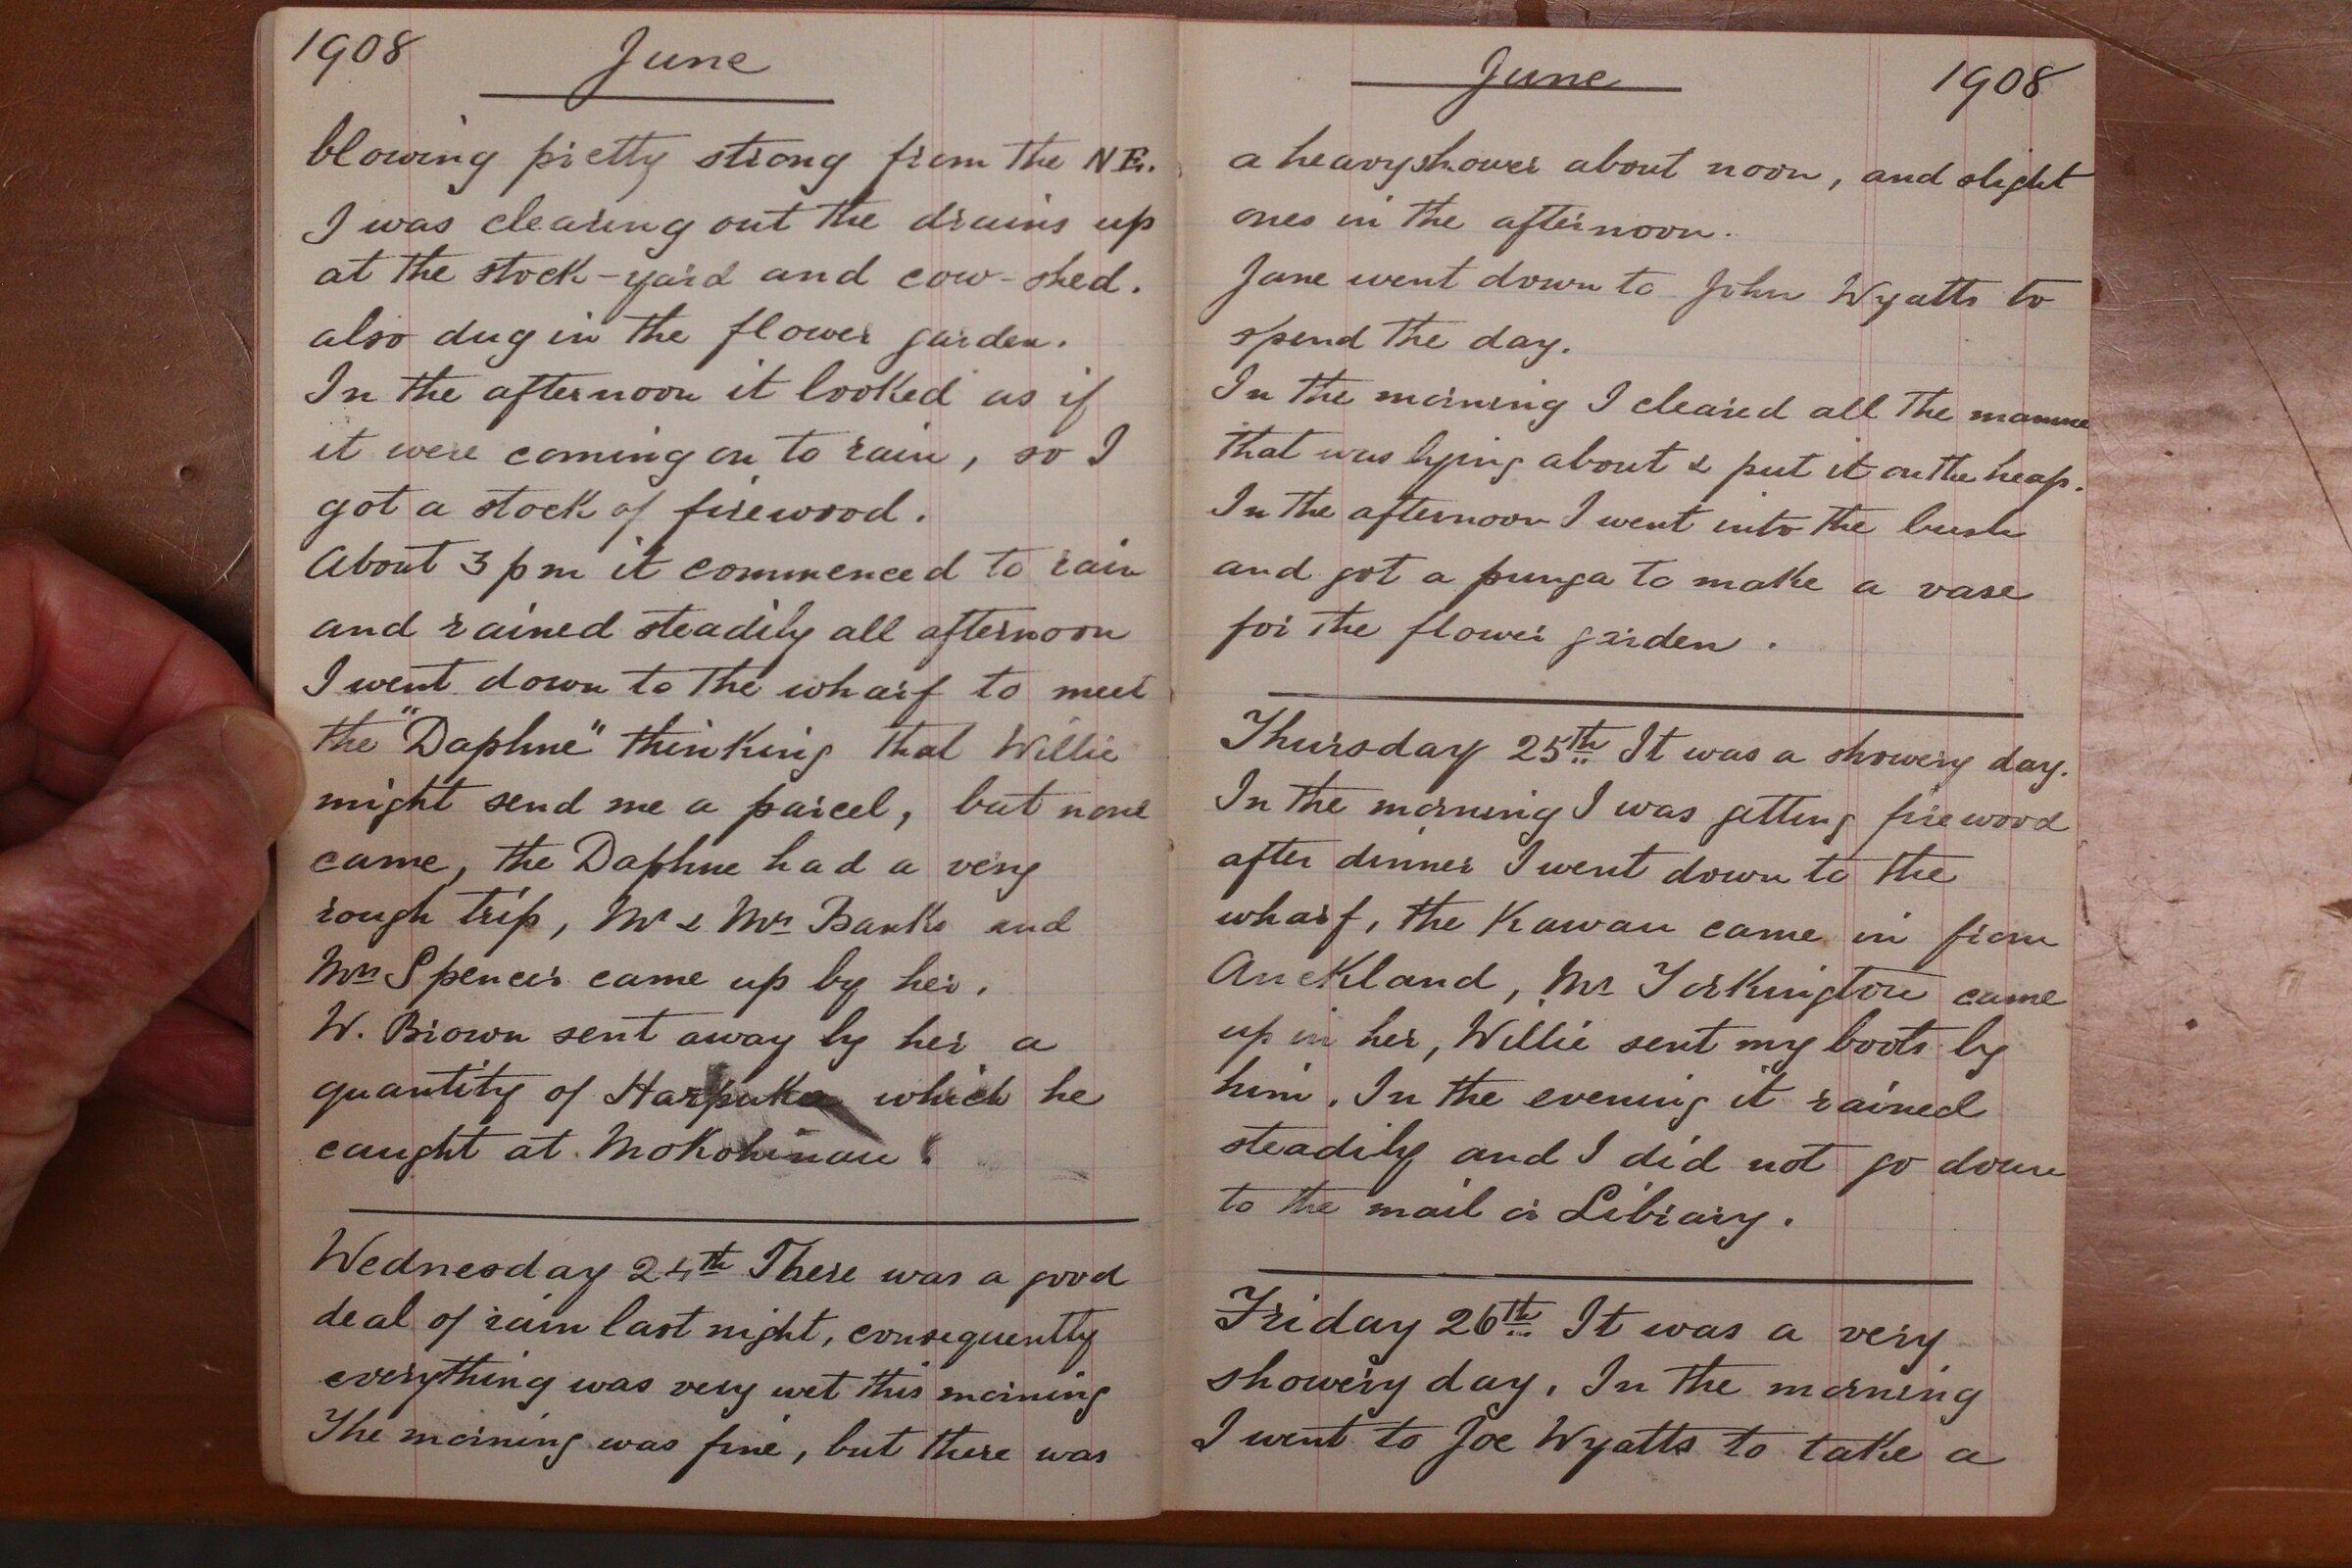 1908 June
blowing pretty strong from the NE.
I was clearing out the drains up
at the stock-yard and cow-shed.
also dug in the flower garden.
In the afternoon it looked as if
it were coming on to rain, so I
got a stock of firewood.
About 3 pm it commenced to rain
and rained steadily all afternoon
I went down to the wharf to meet
the "Daphne" thinking that Willie
might send me a parcel, but none
came, the Daphne had a very
rough trip, Mr & Mrs Banks and
Mrs Spencer came up by her.
W. Brown sent away by her a
quantity of Harpuka which he
caught at Mokohinau.
Wednesday 24th There was a good
deal of rain last night, consequently
everything was very wet this morning
The morning was fine, but there was
June 1908
a heavy shower about noon, and slight
ones in the afternoon.
Jane went down to John Wyatts to
spend the day.
In the morning I cleared all the manure
that was lying about & put it on the heap.
In the afternoon I went into the bush
and got a punga to make a vase
for the flower garden.
Thursday 25th It was a showery day.
In the morning I was getting firewood
after dinner I went down to the
wharf, the Kawau came in from
Auckland, Mr Torkington came
up in her, Willie sent my boots by
him. In the evening it rained
steadily and I did not go down
to the mail or Library.
Friday 26th It was a very
showery day. In the morning
I went to Joe Wyatts to take a